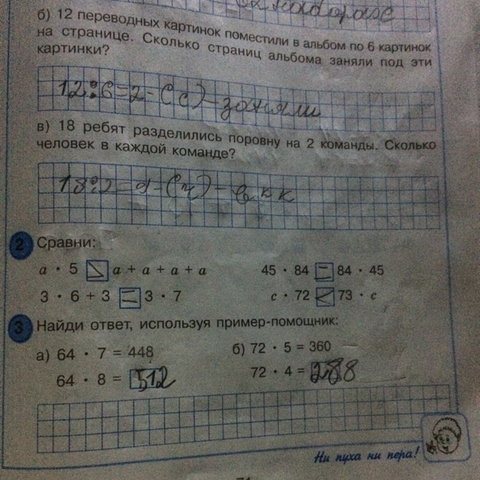 б) 12 переводных картинок поместили в альбом по 6 картинок
на странице. Сколько страниц альбома заняли под эти
картинки?
12:6=2-(с)-заняли
в) 18 ребят разделились поровну на 2 команды. Сколько
человек в каждой команде?
18:2=9-(ч)-в к к
2 Сравни:
a · 5 > a + a + a + a 45 · 84 = 84 · 45
3 · 6 + 3 = 3 · 7 c · 72 < 73 · c
3 Найди ответ, используя пример-помощник:
а) 64 · 7 = 448 б) 72 · 5 = 360
64 · 8 = 512 72 · 4 = 288
Ни пуха ни пера!